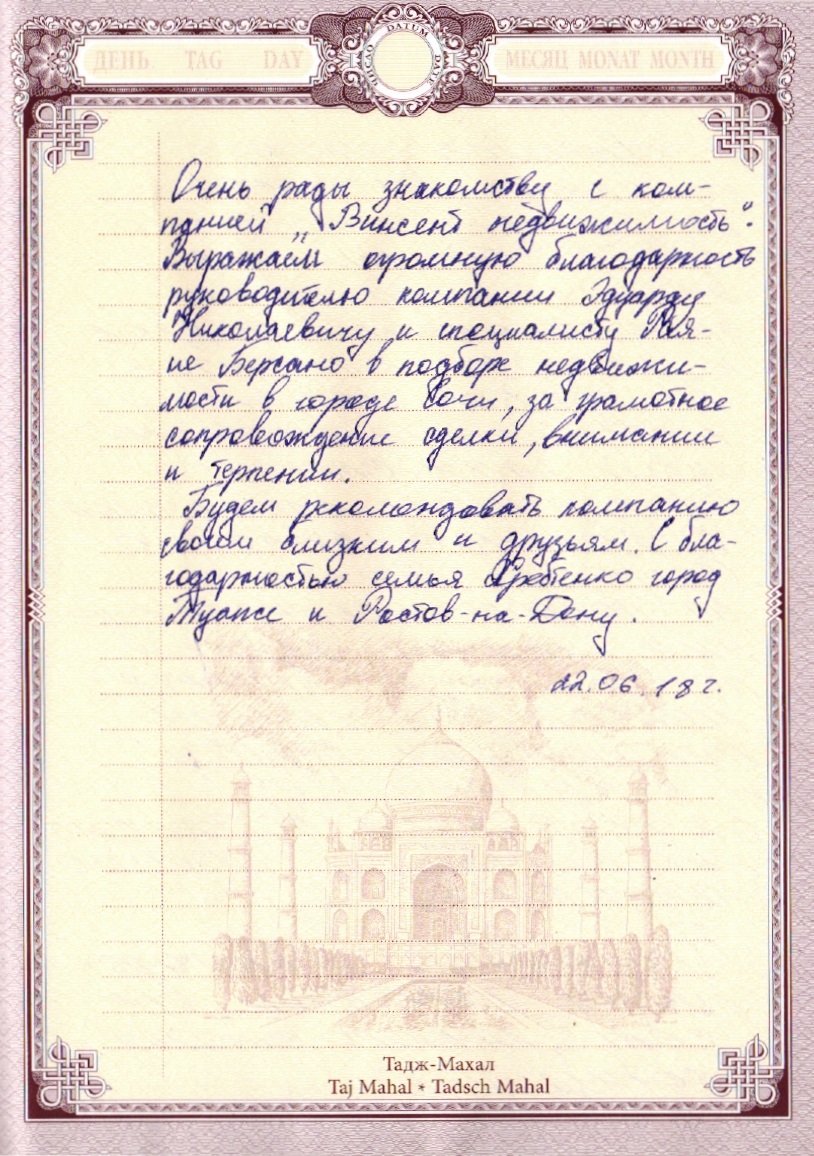 ДЕНЬ TAG DAY
ЧИСЛО DATUM DATE
МЕСЯЦ MONAT MONTH
Очень рады знакомству с ком-
панией „Винсент недвижимость".
Выражаем огромную благодарность
руководителю компании Эдуарду
Николаевичу и специалисту
не Берсано в подборе недвижи-
мости в городе Сочи, за грамотное
сопровождение сделки, внимании
и терпении.
Будем рекомендовать компанию
своим близким и друзьям. С бла-
годарностью семья город
Туапсе и Ростов-на-Дону.
22.06.18 г.
Тадж-Махал
Taj Mahal * Tadsch Mahal